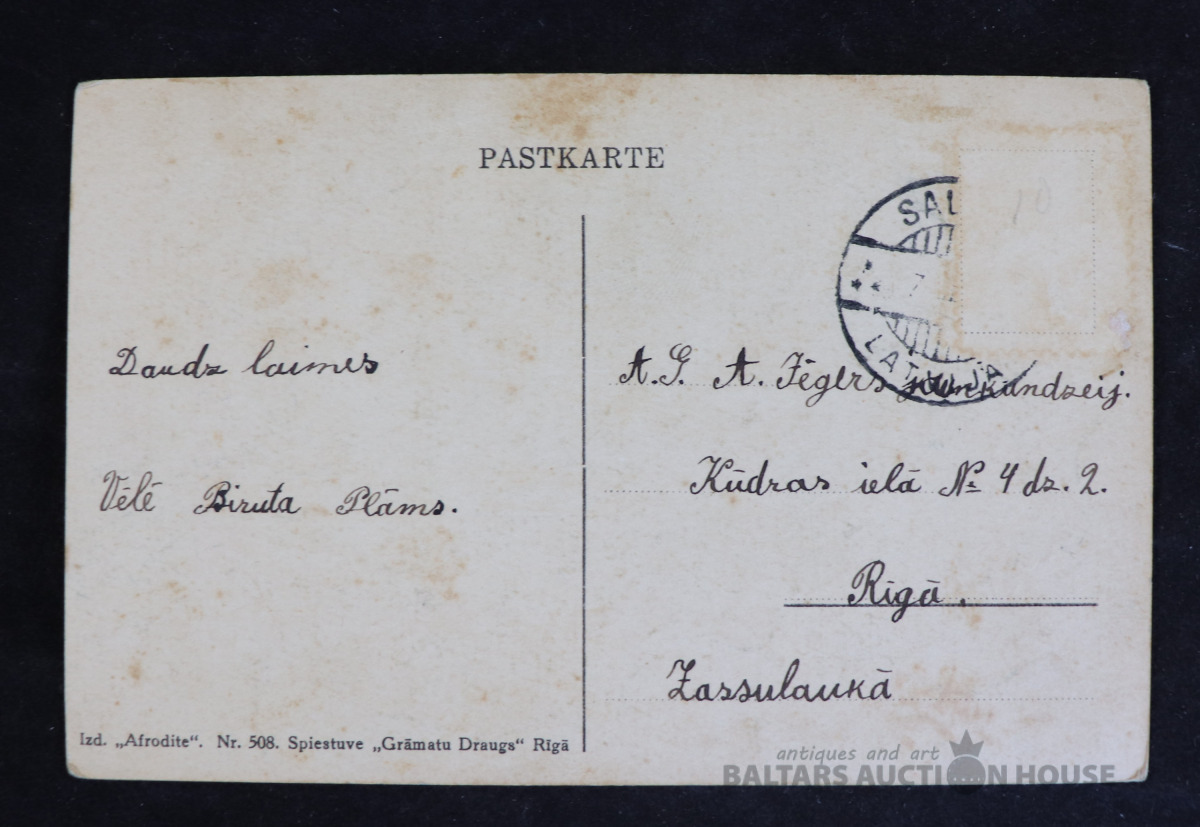 PASTKARTE
SAL
7
LATVIJA
10
Daudz laimes
Vēlē Biruta Plāms.
A.G. A. Jēgers jaunkundzeij.
Kūdras ielā № 4 dz. 2.
Rīgā.
Zassulaukā
Izd. „Afrodite“. Nr. 508. Spiestuve „Grāmatu Draugs“ Rīgā
antiques and art
BALTARS AUCTION HOUSE